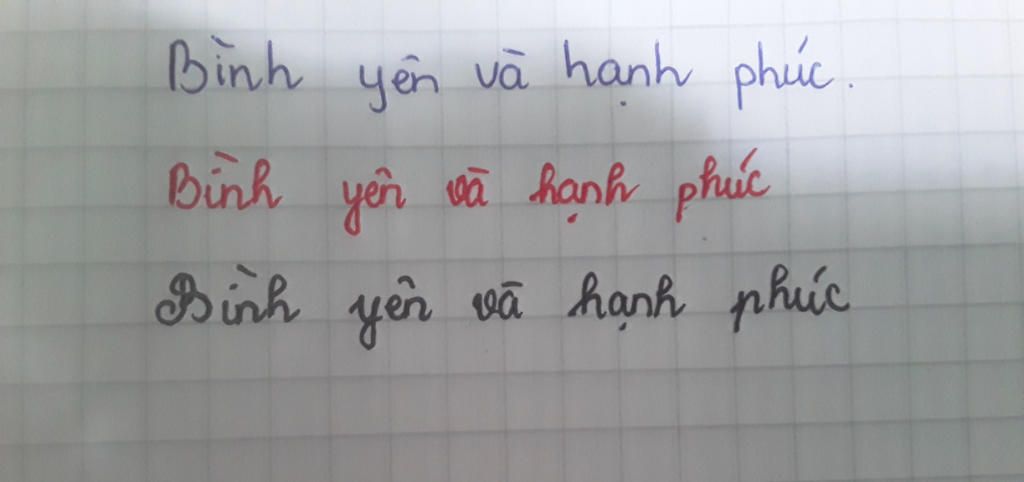 Bình yên và hạnh phúc.
Bình yên và hạnh phúc
Bình yên và hạnh phúc